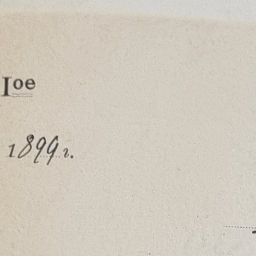 Iое
1899 г.